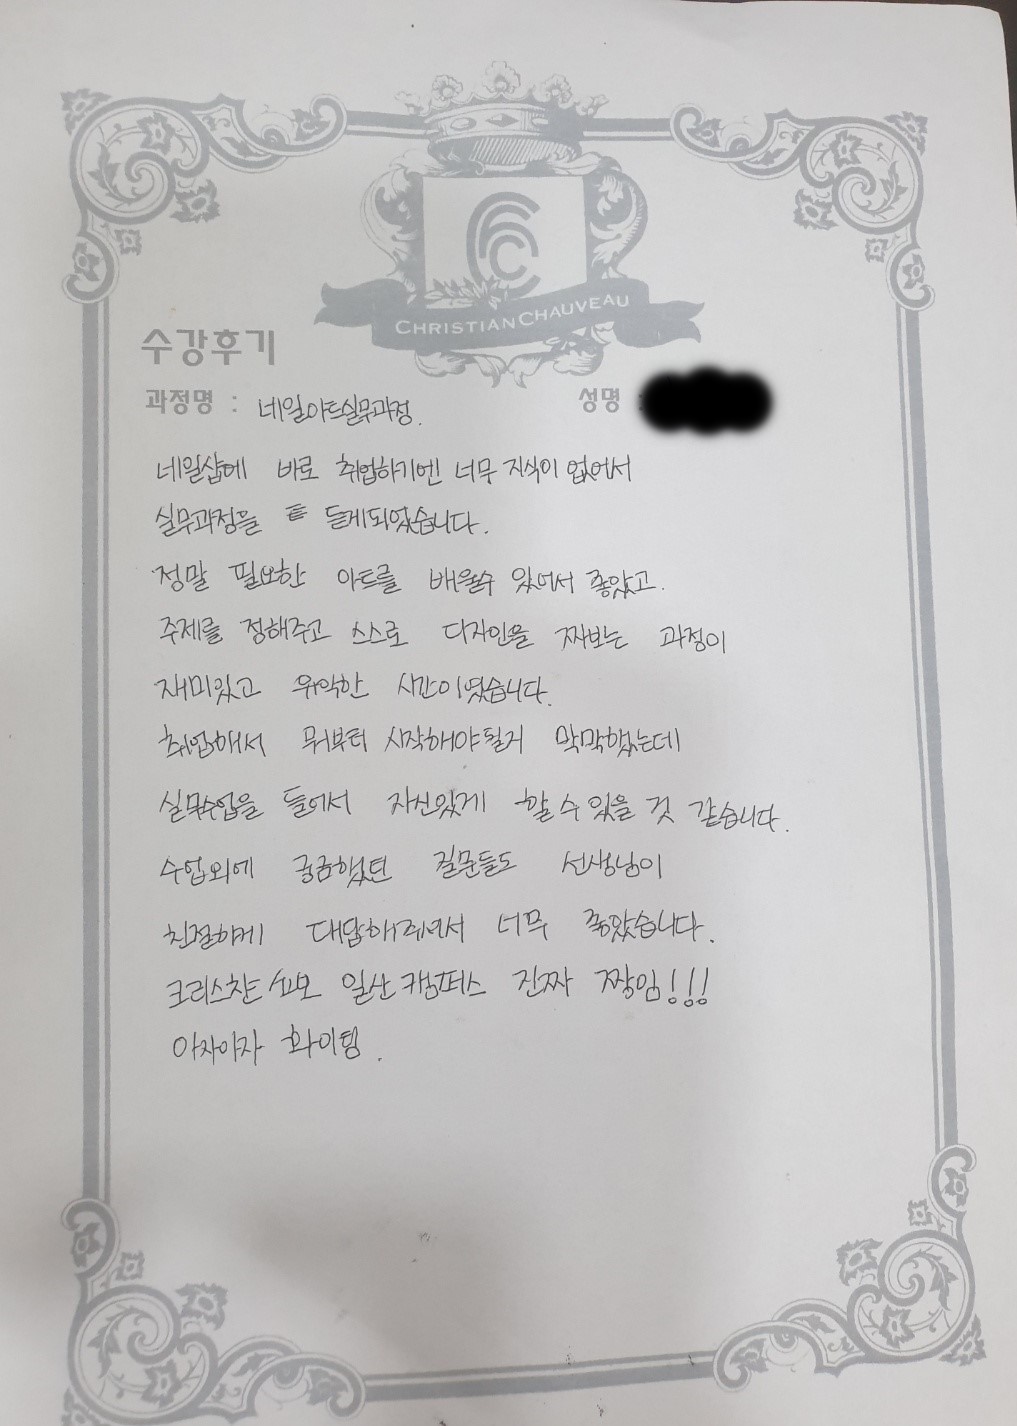 CHRISTIAN CHAUVEAU
수강후기
과정명 : 네일아트실무과정.
성명
네일샵에 바로 취업하기엔 너무 지식이 없어서
실무과정을 듣게되었습니다.
정말 필요한 아트를 배울수 있어서 좋았고.
주제를 정해주고 스스로 디자인을 짜보는 과정이
재미있고 유익한 시간이였습니다.
취업해서 뭐부터 시작해야될지 막막했는데
실무수업을 들어서 자신있게 할 수 있을 것 같습니다.
수업외에 궁금했던 질문들도 선생님이
친절하게 대답해주셔서 너무 좋았습니다.
크리스찬쇼보 일산캠퍼스 진짜 짱임!!!
아자아자 화이팅.